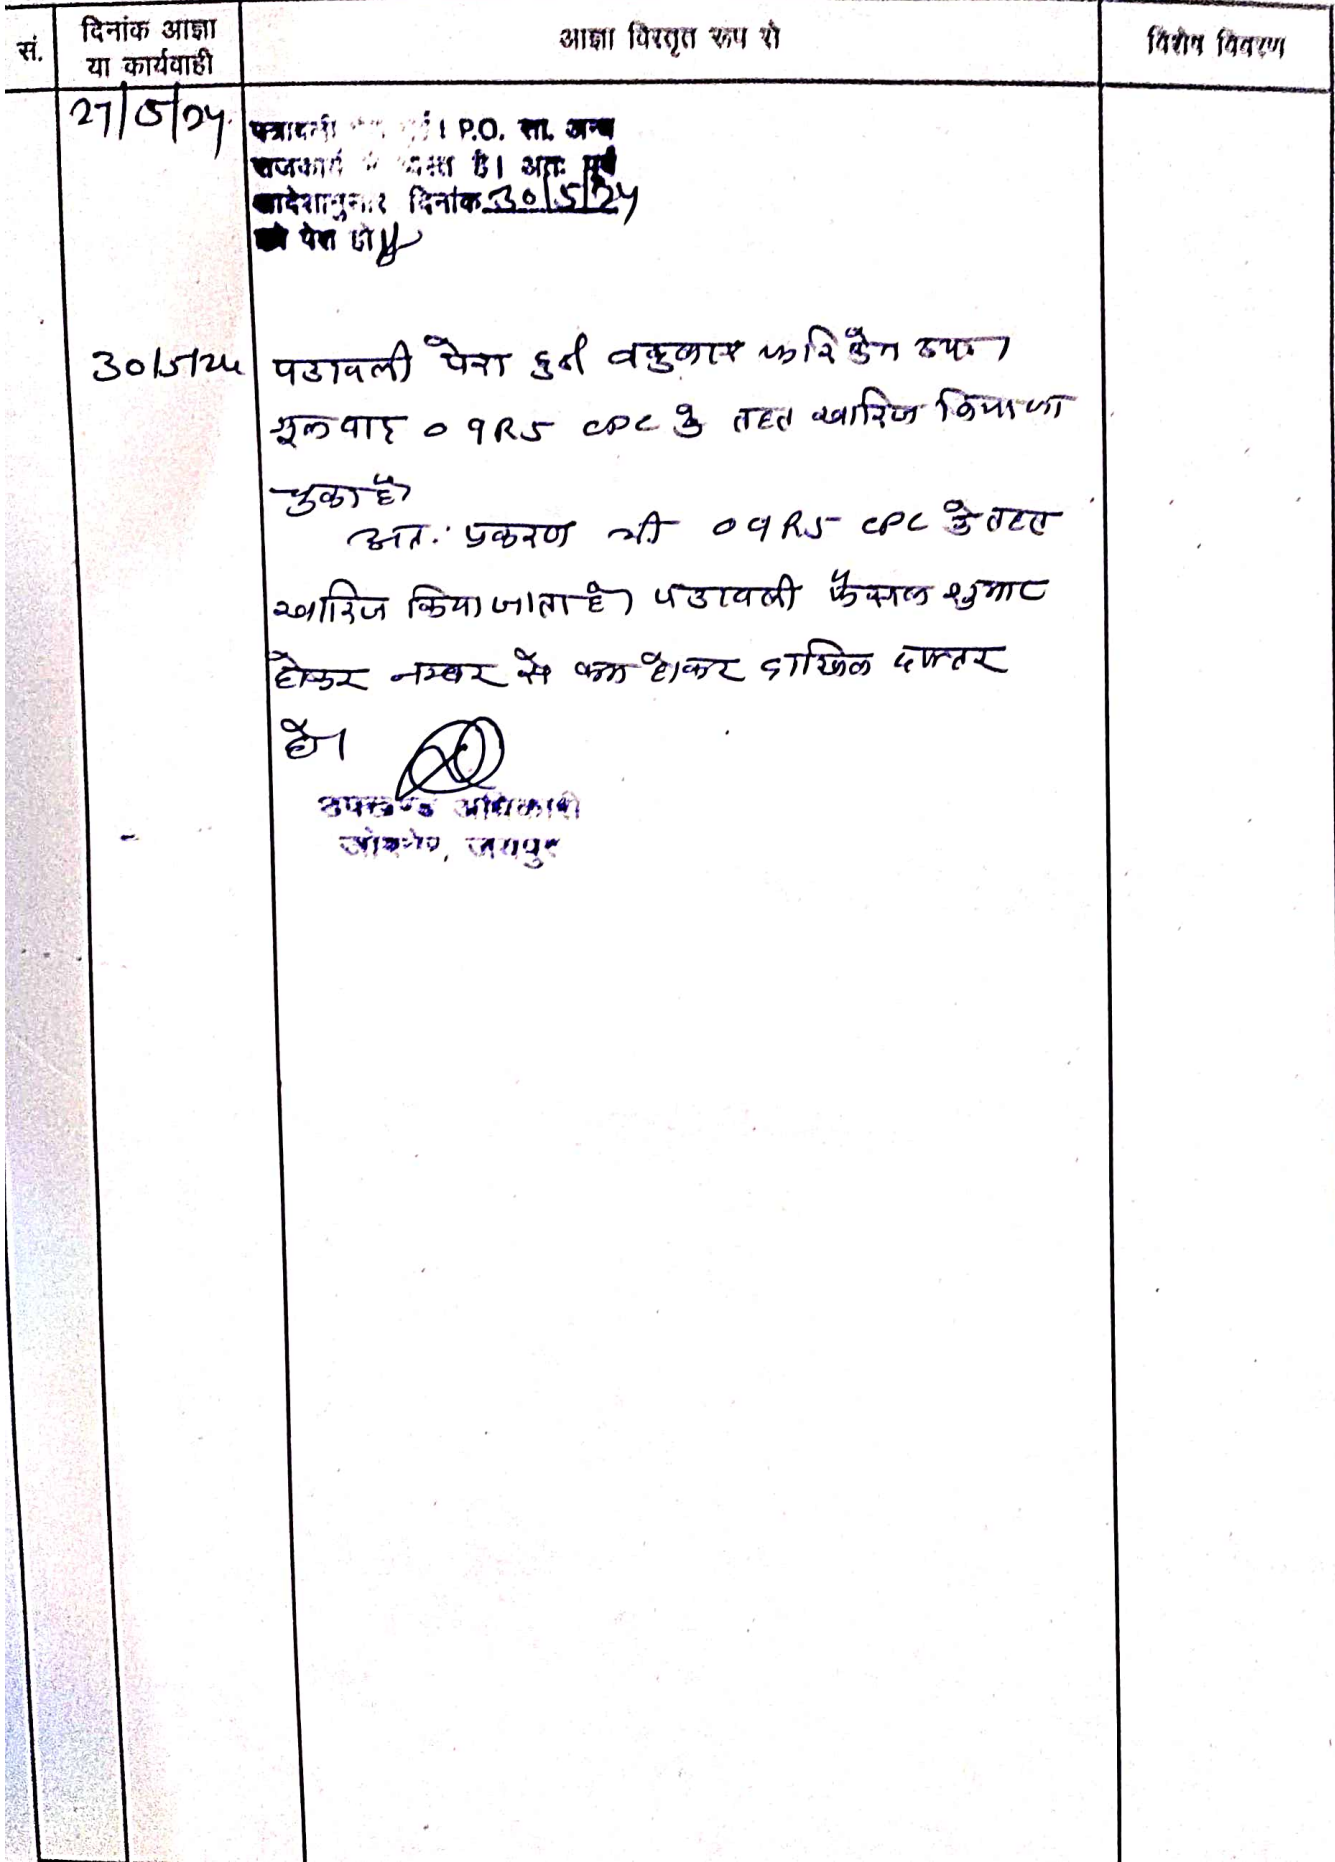 सं.
दिनांक आज्ञा
या कार्यवाही
आज्ञा विस्तृत रूप से
विशेष विवरण
27/5/24
पत्रावली । P.O. सा. अन्य
राजकार्य में व्यस्त है। अतः पूर्व
आदेशानुसार दिनांक 30/5/24
को पेश हो
30/5/24
पत्रावली पेश हुई वकुलाय फरिकेन उप०।
मूल वाद 09R5 CPC के तहत खारिज किया जा
चुका है।
अतः प्रकरण भी 09R5 CPC के तहत
खारिज किया जाता है। पत्रावली फैसल शुमार
होकर नम्बर से कम होकर दाखिल दफ्तर
हो।
उपखण्ड अधिकारी
जयपुर